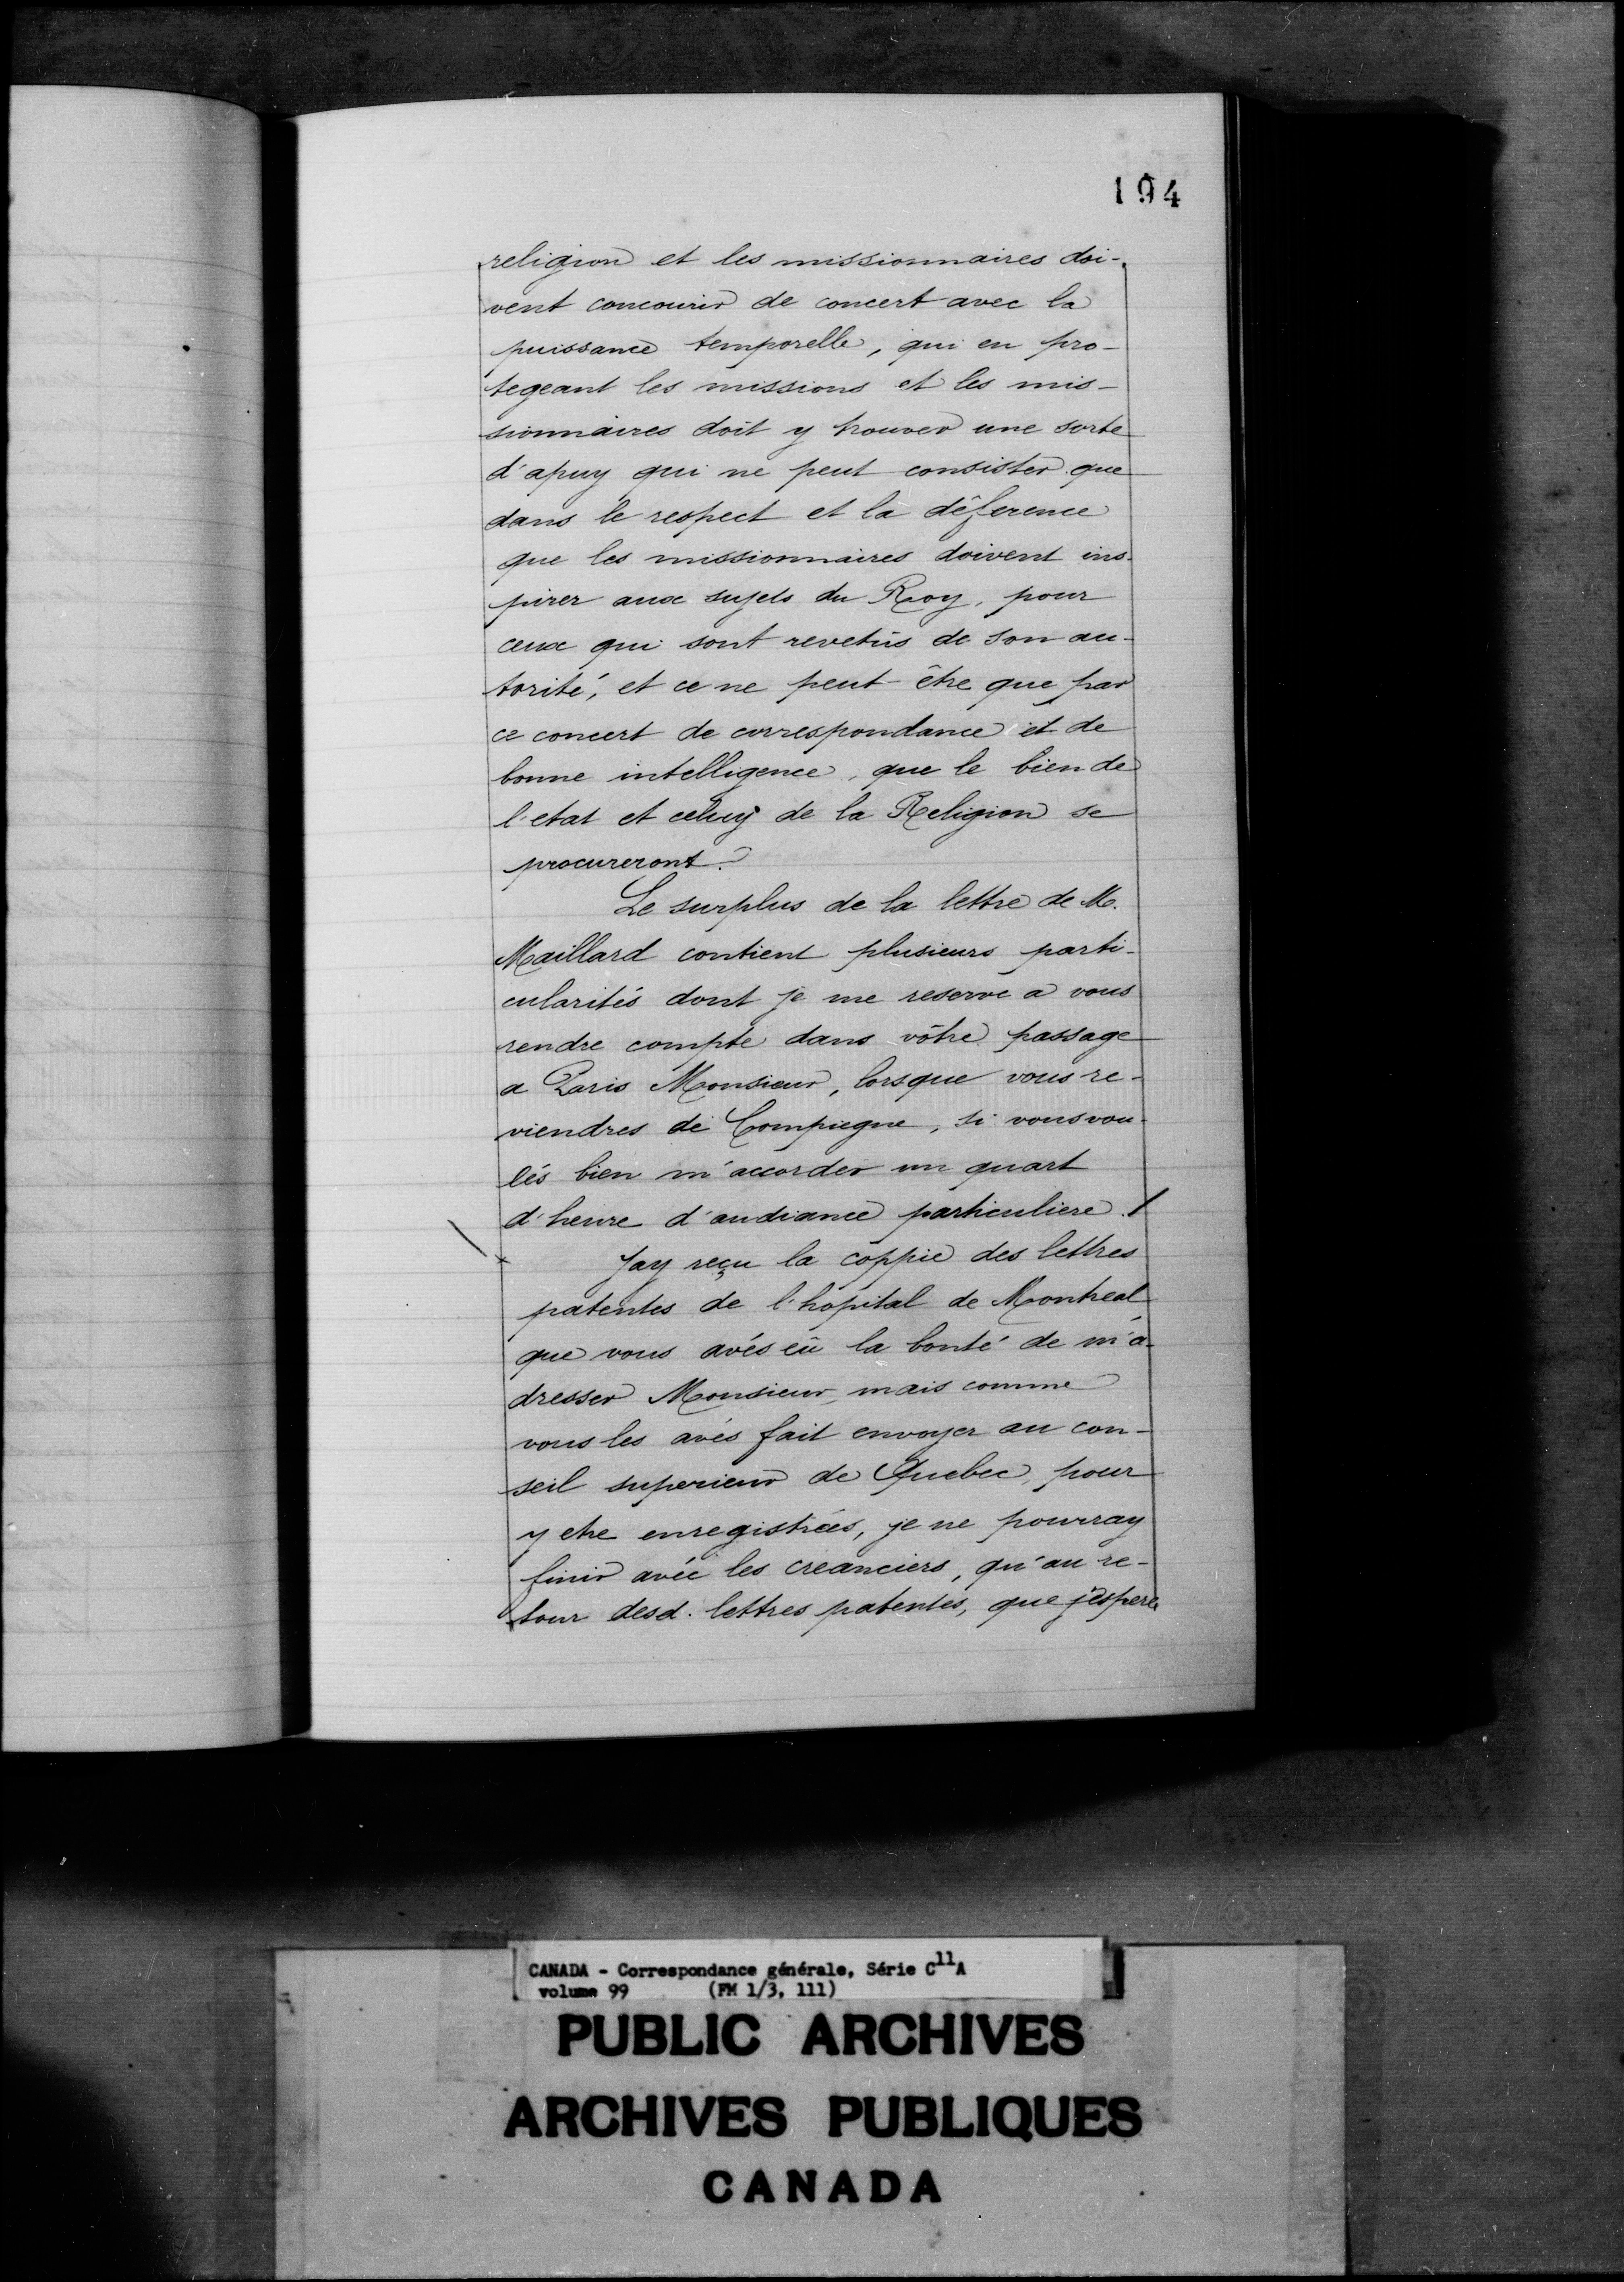 194
religion et les missionnaires doi-
vent concourir de concert avec la
puissance temporelle, qui en pro-
tegeant les missions et les mis-
sionnaires doit y trouver une sorte
d'apuy qui ne peut consister que
dans le respect et la déference
que les missionnaires doivent ins-
pirer aux sujets du Roy, pour
ceux qui sont revetûs de son au-
torité, et ce ne peut-être que par
ce concert de correspondance et de
bonne intelligence, que le bien de
l'etat et celuy de la Religion se
procureront.
Le surplus de la lettre de M.
Maillard contient plusieurs parti-
cularités dont je me reserve a vous
rendre compte dans vôtre passage
a Paris Monsieur, lorsque vous re-
viendres de Compiegne, si vous vou-
lés bien m'accorder un quart
d'heure d'audiance particuliere. /
Jay reçu la coppie des lettres
patentes de l'hôpital de Montreal
que vous avés eû la bonté de m'a-
dresser Monsieur, mais comme
vous les avés fait envoyer au con-
seil superieur de Quebec, pour
y etre enregistrées, je ne pourray
finir avéc les creanciers, qu'au re-
tour desd. lettres patentes, que j'espere
CANADA - Correspondance générale, Série C11A
volume 99 (FM 1/3, 111)
PUBLIC ARCHIVES
ARCHIVES PUBLIQUES
CANADA